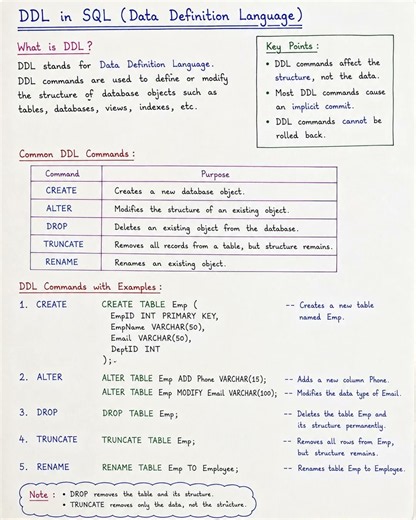 DDL in SQL (Data Definition Language)
What is DDL?
DDL stands for Data Definition Language.
DDL commands are used to define or modify
the structure of database objects such as
tables, databases, views, indexes, etc.
Key Points:
• DDL commands affect the
structure, not the data.
• Most DDL commands cause
an implicit commit.
• DDL commands cannot be
rolled back.
Common DDL Commands:
Command Purpose
CREATE Creates a new database object.
ALTER Modifies the structure of an existing object.
DROP Deletes an existing object from the database.
TRUNCATE Removes all records from a table, but structure remains.
RENAME Renames an existing object.
DDL Commands with Examples:
1. CREATE CREATE TABLE Emp ( -- Creates a new table
EmpID INT PRIMARY KEY, named Emp.
EmpName VARCHAR(50),
Email VARCHAR(50),
DeptID INT
);
2. ALTER ALTER TABLE Emp ADD Phone VARCHAR(15); -- Adds a new column Phone.
ALTER TABLE Emp MODIFY Email VARCHAR(100); -- Modifies the data type of Email.
3. DROP DROP TABLE Emp; -- Deletes the table Emp and
its structure permanently.
4. TRUNCATE TRUNCATE TABLE Emp; -- Removes all rows from Emp,
but structure remains.
5. RENAME RENAME TABLE Emp TO Employee; -- Renames table Emp to Employee.
Note: • DROP removes the table and its structure.
• TRUNCATE removes only the data, not the structure.